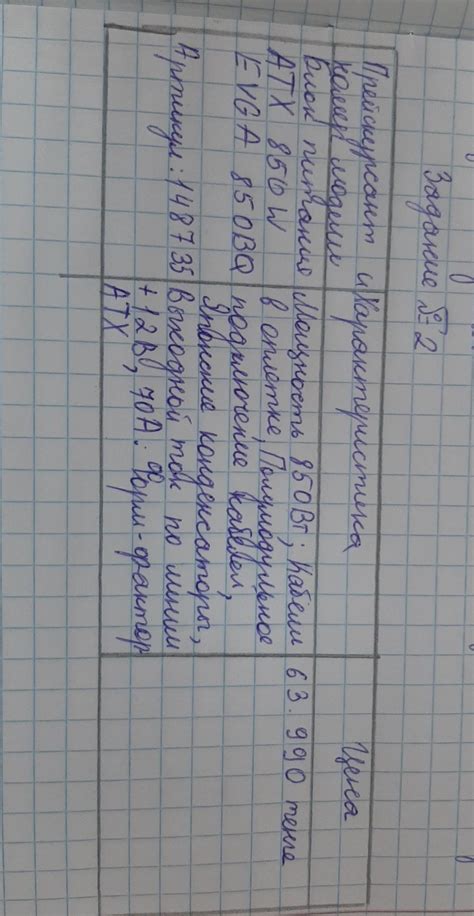 Задание №2
Прейскурант и номер модели
Характеристика
Цена
Блок питания
ATX 850W
EVGA 850BQ
Артикул: 148735
Мощность 850Вт; Кабели
в оплетке, Полумодульное
подключение кабелей,
Японские конденсаторы,
Выходной ток по линии
+12В, 70А. Форм-фактор
ATX
63.990 тенге